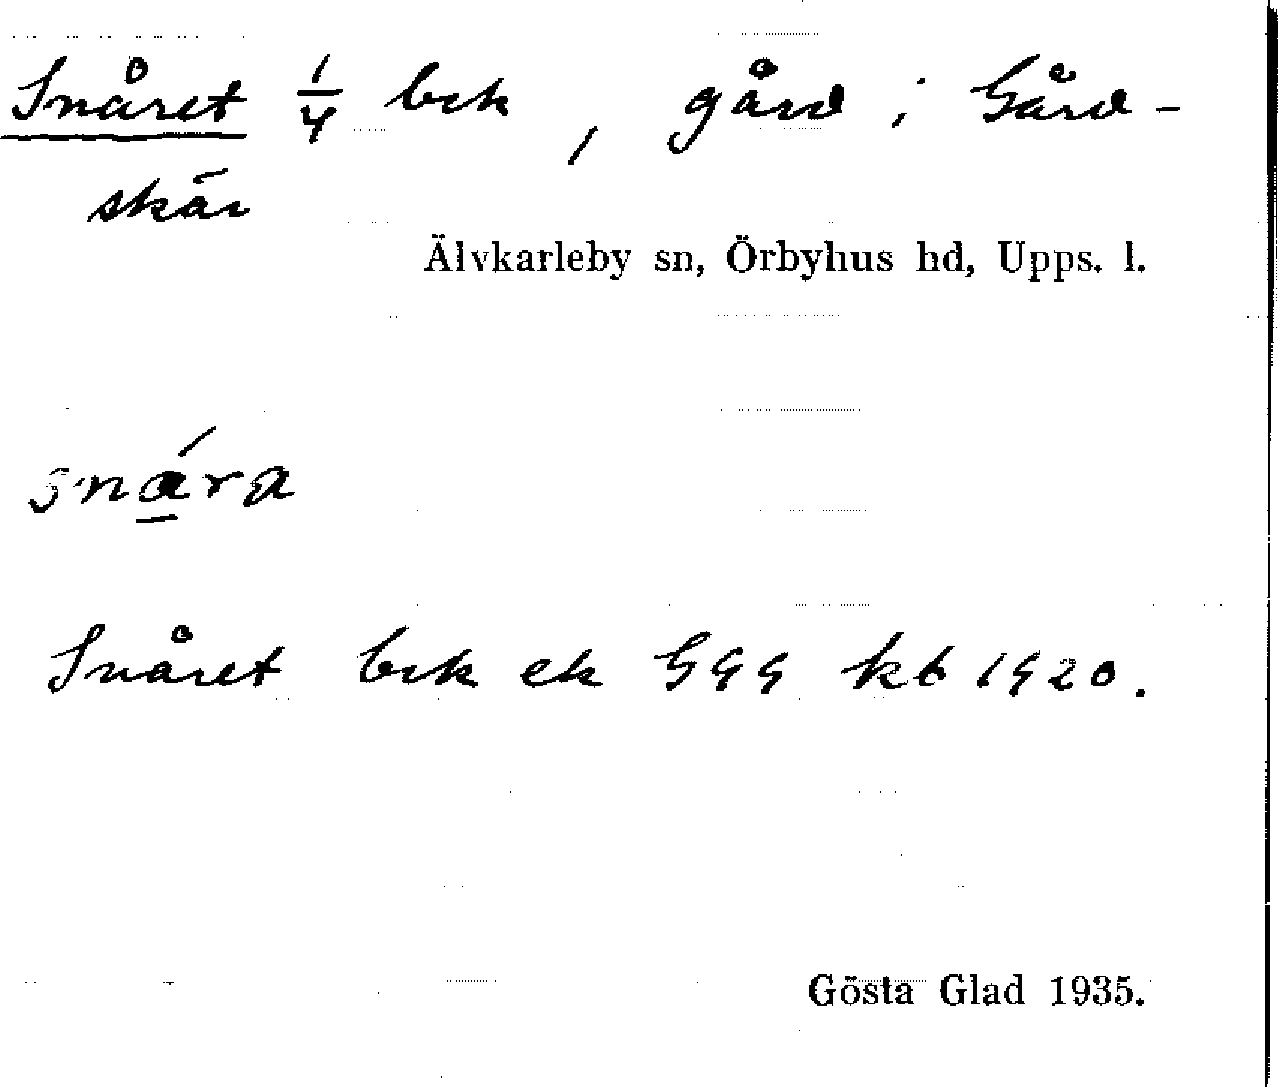 Snåret 1/4 bck, gård i Gård-
skär
Älvkarleby sn, Örbyhus hd, Upps. l.
snára
Snåret bck ek 599 kb 1920.
Gösta Glad 1935.